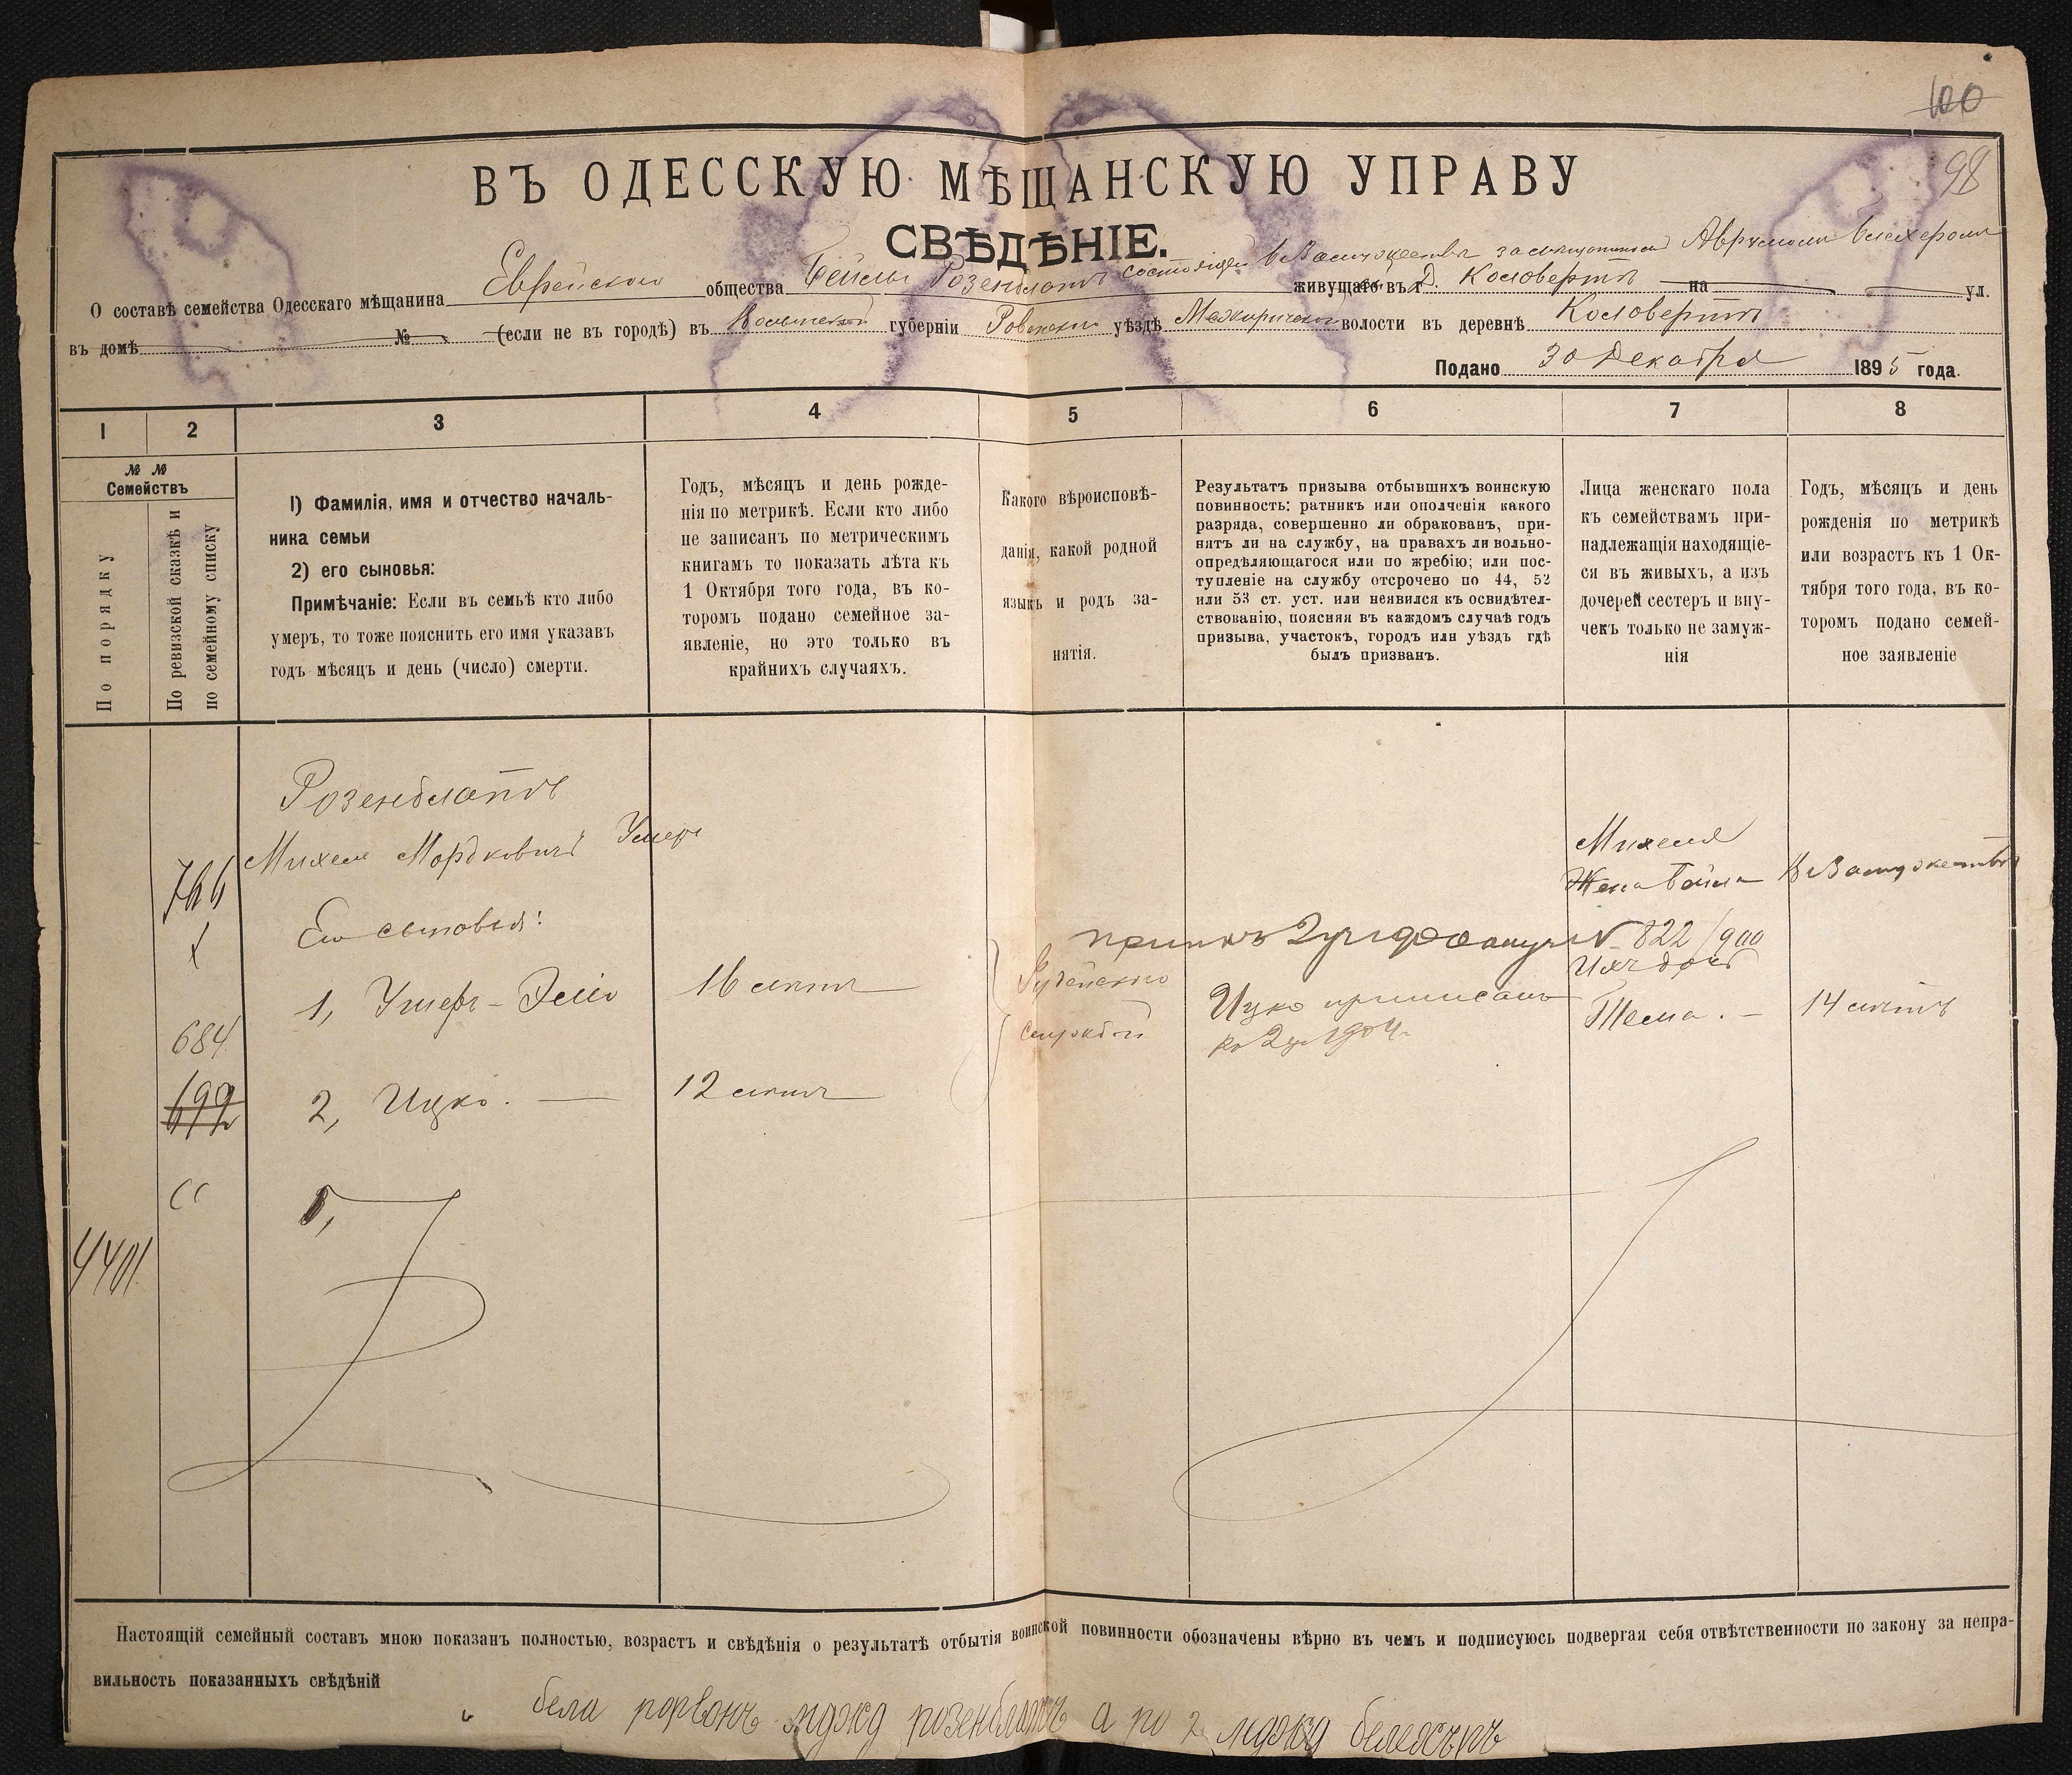 100
98
ВЪ ОДЕССКУЮ МѢЩАНСКУЮ УПРАВУ
СВѢДѢНІЕ.
О составѣ семейства Одесскаго мѣщанина Еврейскаго общества Бейлы Розенблатъ состоящей въ замужествѣ за мѣщаниномъ Аврумомъ живущаго въ г. Д. Коловертъ на ул.
въ домѣ № (если не въ городѣ) въ Волынской губерніи Ровенскаго уѣздѣ Межиричской волости въ деревнѣ Коловертъ
Подано 30 Декабря 1895 года.
1 2 3 4 5 6 7 8
№ №
Семействъ
По порядку
По ревизской сказкѣ и
по семейному списку
1) Фамилія, имя и отчество началь-
ника семьи
2) его сыновья:
Примѣчаніе: Если въ семьѣ кто либо
умеръ, то тоже пояснить его имя указавъ
годъ мѣсяцъ и день (число) смерти.
Годъ, мѣсяцъ и день рожде-
нія по метрикѣ. Если кто либо
не записанъ по метрическимъ
книгамъ то показать лѣта къ
1 Октября того года, въ ко-
торомъ подано семейное за-
явленіе, но это только въ
крайнихъ случаяхъ.
Какого вѣроисповѣ-
данія, какой родной
языкъ и родъ за-
нятія.
Результатъ призыва отбывшихъ воинскую
повинность: ратникъ или ополченія какого
разряда, совершенно ли обракованъ, при-
нятъ ли на службу, на правахъ ли вольно-
опредѣляющагося или по жребію; или пос-
тупленіе на службу отсрочено по 44, 52
или 53 ст. уст. или неявился къ освидѣтел-
ствованію, поясняя въ каждомъ случаѣ годъ
призыва, участокъ, городъ или уѣздъ гдѣ
былъ призванъ.
Лица женскаго пола
къ семействамъ при-
надлежащія находящіе-
ся въ живыхъ, а изъ
дочерей сестеръ и вну-
чекъ только не замуж-
нія
Годъ, мѣсяцъ и день
рожденія по метрикѣ
или возрастъ къ 1 Ок-
тября того года, въ ко-
торомъ подано семей-
ное заявленіе
Розенблатъ
Михель Мордковичъ Умеръ
Его сыновья:
1, Ушеръ-Зейлъ 16 лѣтъ
2, Ицко. 12 лѣтъ
684
692
4401
Іудейскаго
№ 822/900
Ицко приписанъ
къ 2 уч 1904 г.
Михеля
Жена Бейла В Замужествѣ
Ихъ дочь
Тема. 14 лѣтъ
Настоящій семейный составъ мною показанъ полностью, возрастъ и свѣдѣнія о результатѣ отбытія воинской повинности обозначены вѣрно въ чемъ и подписуюсь подвергая себя отвѣтственности по закону за непра-
вильность показанныхъ свѣдѣній